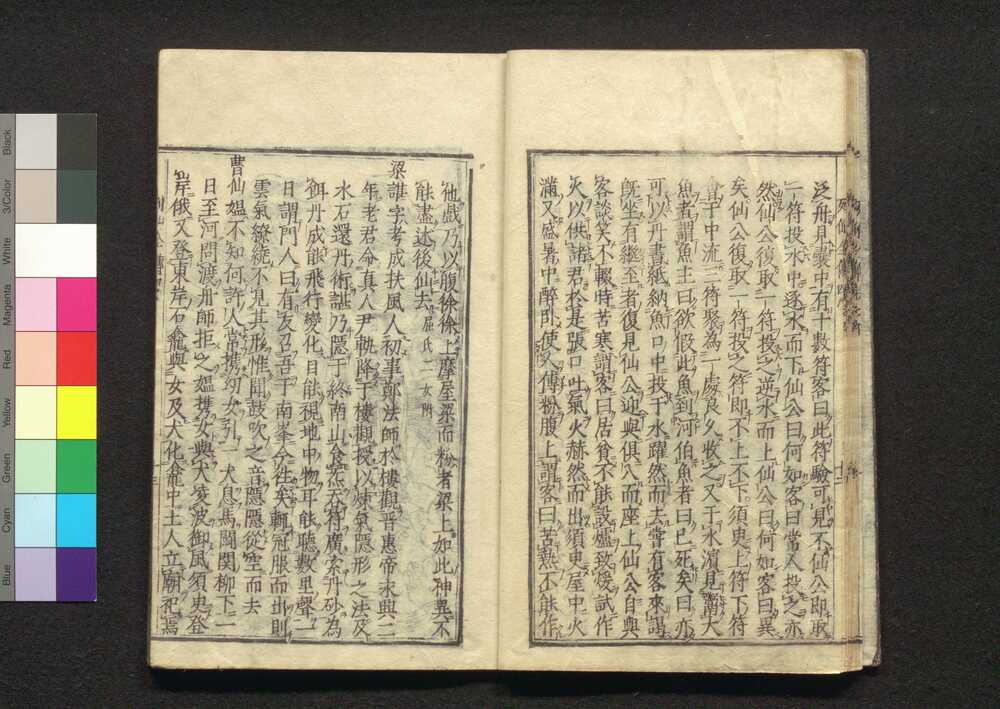 泛舟見囊中有十數符客曰此符驗可見不仙公即取
一符投水中逐水而下仙公曰何如客曰常人投之亦
然仙公復取一符投之逆水而上仙公曰何如客曰異
矣仙公復取一符投之符即不上不下須臾上符下符
于中流三符聚為一處良久收之又于水濱見鬻大
魚者謂魚主曰欲假此魚到河伯魚者曰已死矣曰亦
可以丹書紙納魚口中投于水躍然而去嘗有客來謁
既坐有繼至者復見仙公迎與俱入而座上仙公自與
客談笑不輟時苦寒謂客曰居貧不能設爐致煖試作
火以供諸君於是張口吐氣火赫然而出須臾屋中火
滿又盛暑中醉臥使人傅粉腹上謂客曰苦熱不能作
他戲乃以腹徐徐上摩屋梁而粉著梁上如此神異不
能盡述後仙去 屈氏二女附
梁諶字考成扶風人初事鄭法師於樓觀晉惠帝永興二
年老君命真人尹軌降于樓觀授以煉氣隱形之法及
水石還丹術諶乃隱于終南山食炁吞符廣索丹砂為
餌丹成能飛行變化日能視地中物耳能聽數里聲一
日謂門人曰有友召吾于南峯今往矣輒冠服而出則
雲氣繚繞不見其形惟聞鼓吹之音隱隱從空而去
曹仙媼不知何許人常携幼女引一犬息馬闌関柳下一
日至河問渡舟師拒之媼携女與犬凌波御風須臾登
岸俄又登東岸石龕與女及犬化龕中土人立廟祀焉
Black
3/Color
White
Magenta
Red
Yellow
Green
Cyan
Blue